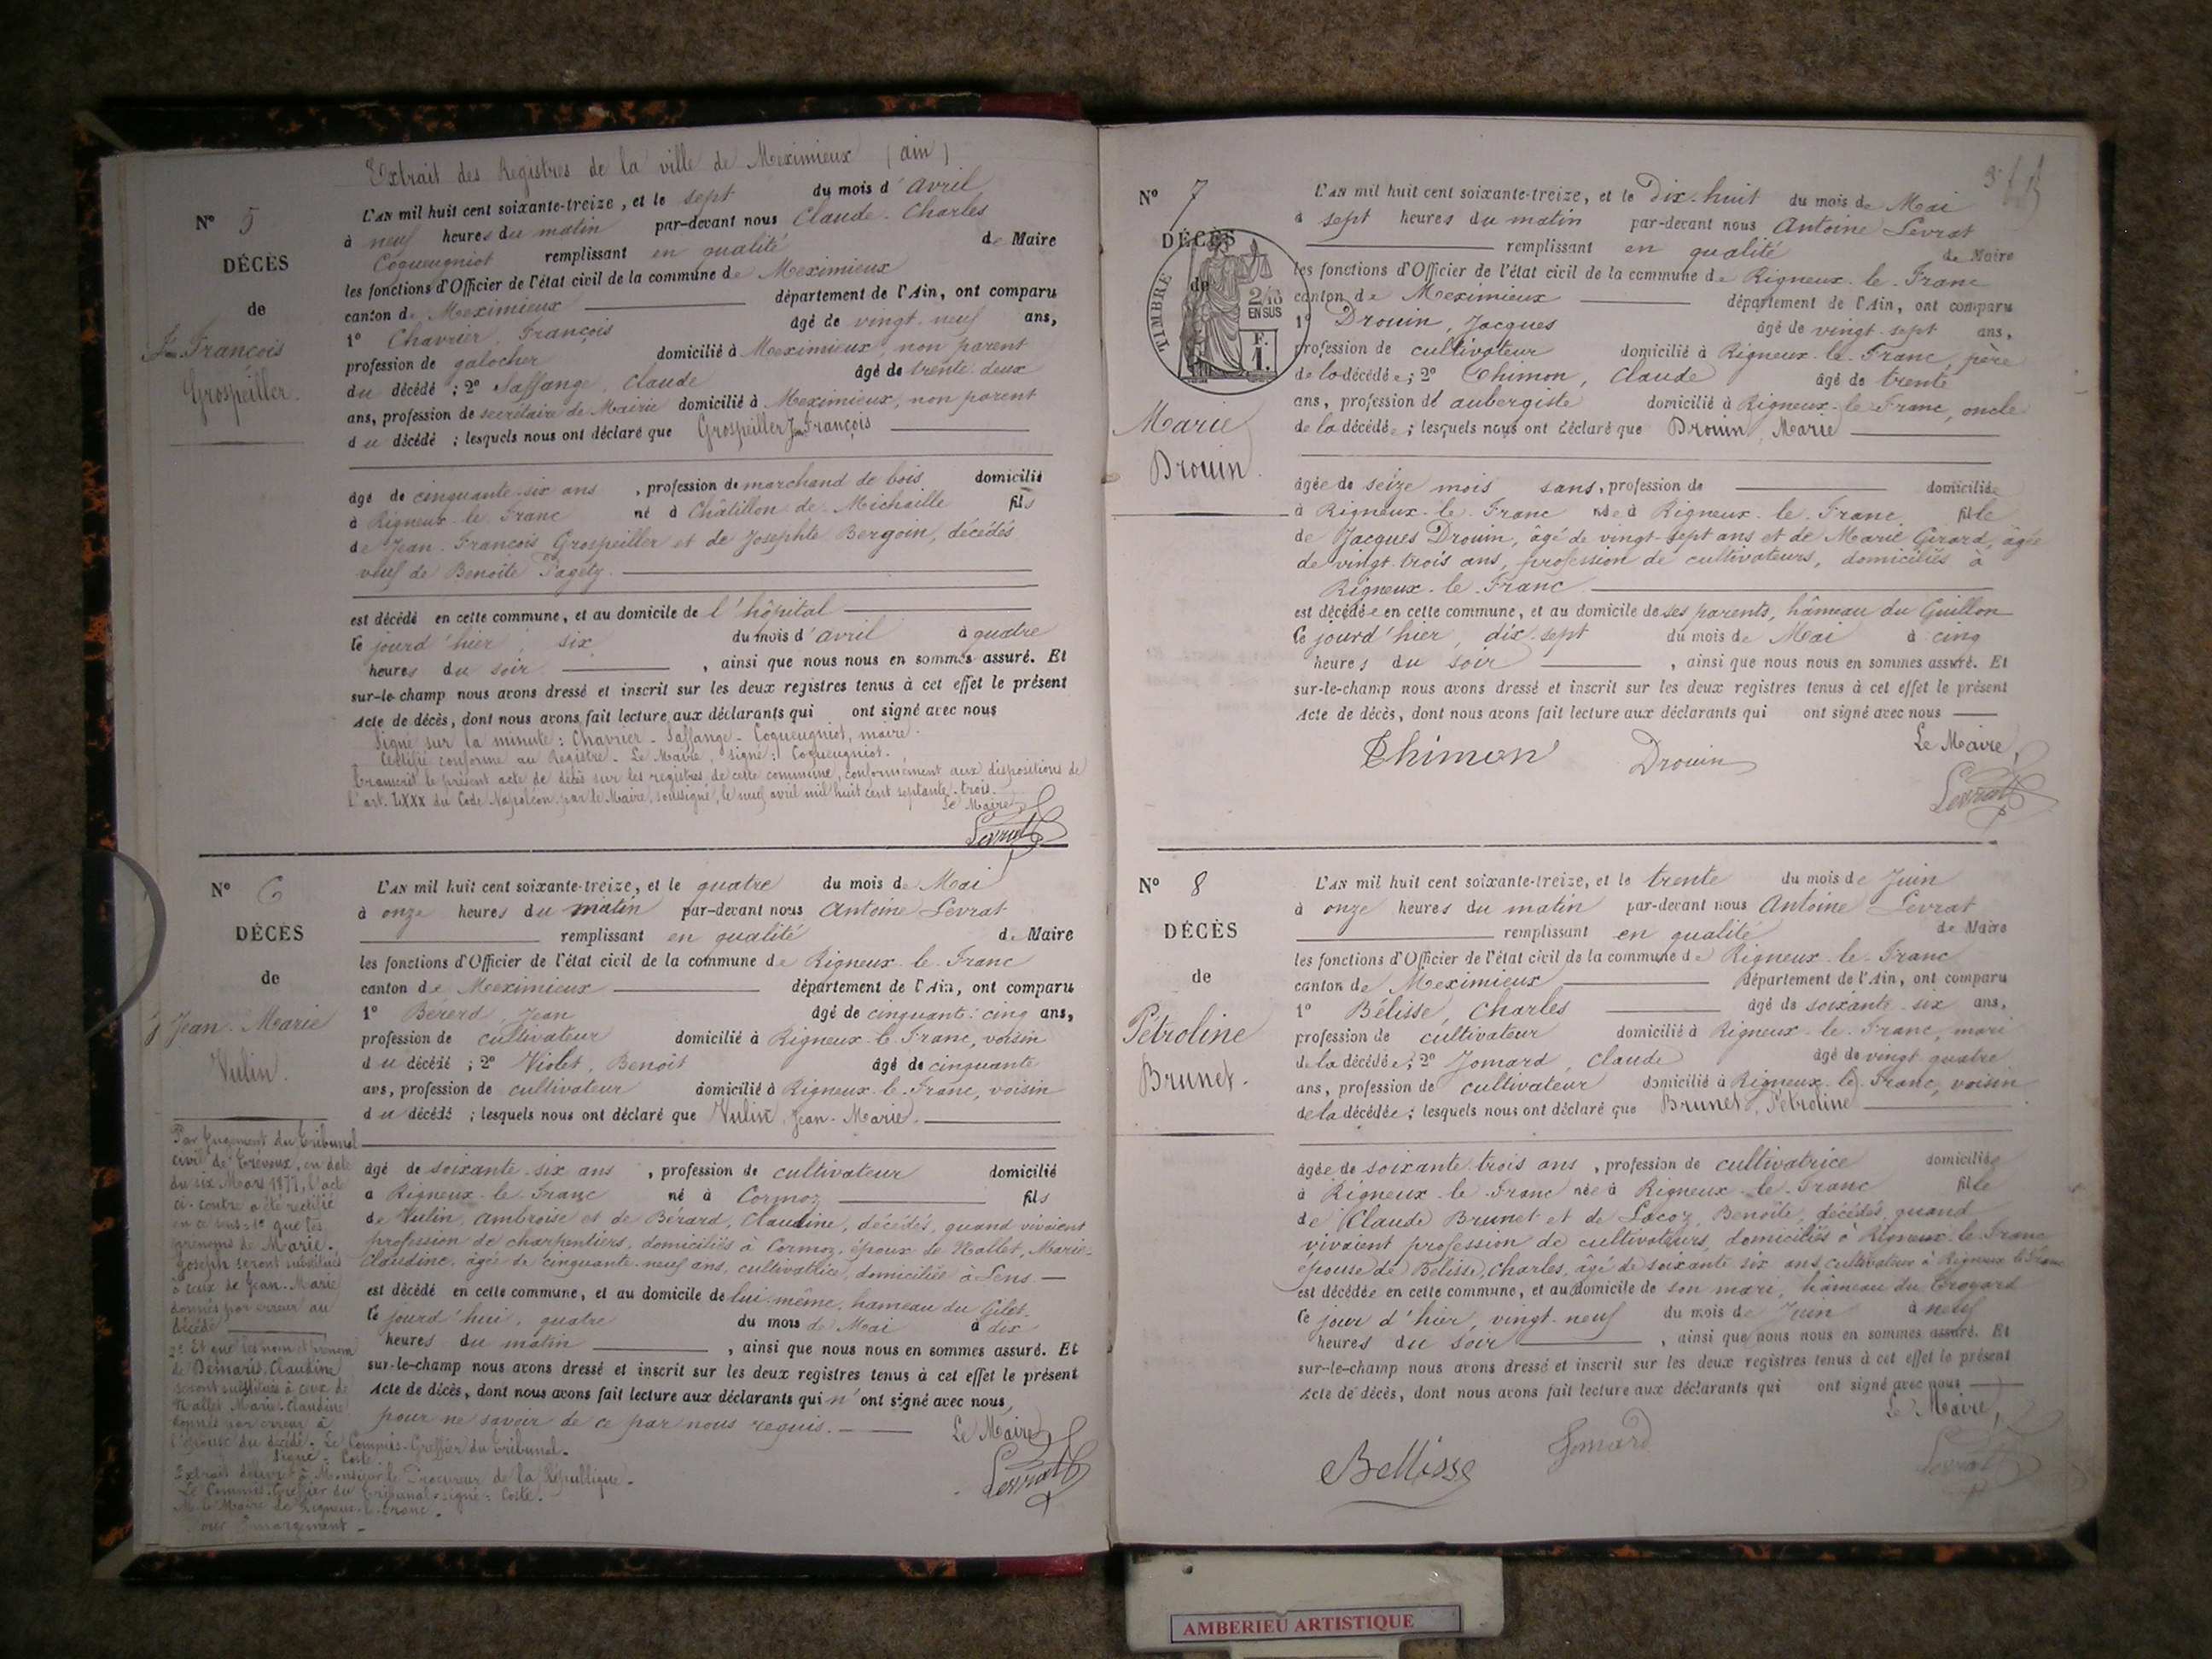 Extrait des Registres de la ville de Meximieux (ain)
N° 5
DÉCÈS
de
Jn François
Grospeiller.
L'AN mil huit cent soixante-treize, et le sept du mois d'avril
à neuf heures du matin par-devant nous Claude-Charles
Coqueugniot remplissant en qualité de Maire
les fonctions d'Officier de l'état civil de la commune de Meximieux
canton de Meximieux département de l'Ain, ont comparu
1° Chavrier, François âgé de vingt-neuf ans,
profession de galocher domicilié à Meximieux, non parent
du décédé ; 2° Saffange, Claude âgé de trente-deux
ans, profession de secrétaire de Mairie domicilié à Meximieux, non parent
du décédé ; lesquels nous ont déclaré que Grospeiller Jn François
âgé de cinquante-six ans , profession de marchand de bois domicilié
à Rigneux-le-Franc né à Châtillon-de-Michaille fils
de Jean-François Grospeiller et de Josephte Bergoin, décédés
veuf de Benoîte Pagéty.
est décédé en cette commune, et au domicile de l'hôpital
le jourd'hier, six du mois d'avril à quatre
heures du soir , ainsi que nous nous en sommes assuré. Et
sur-le-champ nous avons dressé et inscrit sur les deux registres tenus à cet effet le présent
Acte de décès, dont nous avons fait lecture aux déclarants qui ont signé avec nous
Signé sur la minute : Chavrier - Saffange - Coqueugniot, maire.
Certifié conforme au Registre. Le Maire, signé : Coqueugniot.
Transcrit le présent acte de décès sur les registres de cette commune, conformément aux dispositions de
l'art. LXXX du Code Napoléon par le Maire, soussigné, le neuf avril mil huit cent septante-trois.
Le Maire,
Levrat
N° 6
DÉCÈS
de
Jean-Marie
Vulin.
L'AN mil huit cent soixante-treize, et le quatre du mois de Mai
à onze heures du matin par-devant nous Antoine Levrat
remplissant en qualité de Maire
les fonctions d'Officier de l'état civil de la commune de Rigneux-le-Franc
canton de Meximieux département de l'Ain, ont comparu
1° Bérerd, Jean âgé de cinquante-cinq ans,
profession de cultivateur domicilié à Rigneux-le-Franc, voisin
du décédé ; 2° Violet, Benoît âgé de cinquante
ans, profession de cultivateur domicilié à Rigneux-le-Franc, voisin
du décédé ; lesquels nous ont déclaré que Vulin, Jean-Marie.
âgé de soixante-six ans , profession de cultivateur domicilié
à Rigneux-le-Franc né à Cormoz fils
de Vulin, Ambroise et de Bérard, Claudine, décédés, quand vivaient
profession de charpentiers, domiciliés à Cormoz, époux de Nallet, Marie-
Claudine, âgé de cinquante-neuf ans, cultivatrice, domiciliée à Sens.
est décédé en cette commune, et au domicile de lui-même, hameau du Gilet
le jourd'hui, quatre du mois de Mai à dix
heures du matin , ainsi que nous nous en sommes assuré. Et
sur-le-champ nous avons dressé et inscrit sur les deux registres tenus à cet effet le présent
Acte de décès, dont nous avons fait lecture aux déclarants qui n'ont signé avec nous,
pour ne savoir de ce par nous requis. Le Maire,
Levrat
Par Jugement du Tribunal
civil de Trévoux, en date
du six Mars 1877, l'acte
ci-contre a été rectifié
en ce sens : 1° que les
prénoms de Marie-
Joseph seront substitués
à ceux de Jean-Marie
donnés par erreur au
décédé
2° Et que les nom et prénom
de Demaris, Claudine
seront substitués à ceux de
Nallet Marie-Claudine
donnés par erreur à
l'épouse du décédé. Le Commis-Greffier du Tribunal.
Signé : Coste.
Extrait délivré à Monsieur le Procureur de la République.
Le Commis-Greffier du Tribunal signé : Coste.
M. le Maire de Rigneux-le-Franc.
Pour Emargement.
N° 7
DÉCÈS
de
Marie
Drouin.
TIMBRE
2/10
EN SUS
F.
1.
L'AN mil huit cent soixante-treize, et le Dix-huit du mois de Mai
à sept heures du matin par-devant nous Antoine Levrat
remplissant en qualité de Maire
les fonctions d'Officier de l'état civil de la commune de Rigneux-le-Franc
canton de Meximieux département de l'Ain, ont comparu
1° Drouin, Jacques âgé de vingt-sept ans,
profession de cultivateur domicilié à Rigneux-le-Franc, père
de la décédée ; 2° Thimon, Claude âgé de trente
ans, profession de aubergiste domicilié à Rigneux-le-Franc, oncle
de la décédée ; lesquels nous ont déclaré que Drouin, Marie
âgée de seize mois sans, profession de domiciliée
à Rigneux-le-Franc née à Rigneux-le-Franc fille
de Jacques Drouin, âgé de vingt-sept ans et de Marie Girard, âgée
de vingt-trois ans, profession de cultivateurs, domiciliés à
Rigneux-le-Franc
est décédée en cette commune, et au domicile de ses parents, hâmeau du Guillon
le jourd'hier, dix-sept du mois de Mai à cinq
heures du soir , ainsi que nous nous en sommes assuré. Et
sur-le-champ nous avons dressé et inscrit sur les deux registres tenus à cet effet le présent
Acte de décès, dont nous avons fait lecture aux déclarants qui ont signé avec nous
Le Maire,
Thimon Drouin
Levrat
N° 8
DÉCÈS
de
Pétroline
Brunet.
L'AN mil huit cent soixante-treize, et le trente du mois de Juin
à onze heures du matin par-devant nous Antoine Levrat
remplissant en qualité de Maire
les fonctions d'Officier de l'état civil de la commune de Rigneux-le-Franc
canton de Meximieux département de l'Ain, ont comparu
1° Bélisse, Charles âgé de soixante-six ans,
profession de cultivateur domicilié à Rigneux-le-Franc, mari
de la décédée ; 2° Jomard, Claude âgé de vingt-quatre
ans, profession de cultivateur domicilié à Rigneux-le-Franc, voisin
de la décédée ; lesquels nous ont déclaré que Brunet, Pétroline
âgée de soixante-trois ans , profession de cultivatrice domiciliée
à Rigneux-le-Franc née à Rigneux-le-Franc fille
de Claude Brunet et de Lacoz, Benoîte, décédés, quand
vivaient profession de cultivateurs, domiciliés à Rigneux-le-Franc
épouse de Bélisse, Charles, âgé de soixante six ans, cultivateur à Rigneux le Franc
est décédée en cette commune, et au domicile de son mari, hâmeau du Crogard
le jour d'hier, vingt-neuf du mois de Juin à neuf
heures du soir , ainsi que nous nous en sommes assuré. Et
sur-le-champ nous avons dressé et inscrit sur les deux registres tenus à cet effet le présent
Acte de décès, dont nous avons fait lecture aux déclarants qui ont signé avec nous
Le Maire,
Bellisse Jomard
Levrat
AMBERIEU ARTISTIQUE